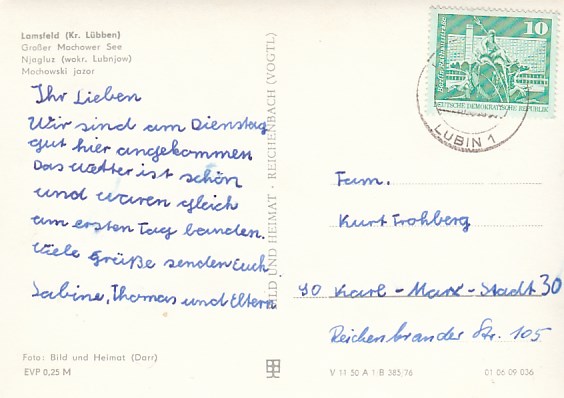 Lamsfeld (Kr. Lübben)
Großer Mochower See
Njagluz (wokr. Lubnjow)
Mochowski jazor
Ihr Lieben
Wir sind am Dienstag
gut hier angekommen
Das Wetter ist schön
und waren gleich
am ersten Tag banden.
Viele Grüße senden Euch
Sabine, Thomas und Eltern
Foto: Bild und Heimat (Darr)
EVP 0,25 M
BILD UND HEIMAT · REICHENBACH (VOGTL)
10
Berlin, Rathausstraße
DEUTSCHE DEMOKRATISCHE REPUBLIK
LUBIN 1
Fam.
Kurt Trohberg
90 Karl-Marx-Stadt 30
Reichenbrander Str. 105
V 11 50 A 1 B 385/76
01 06 09 036